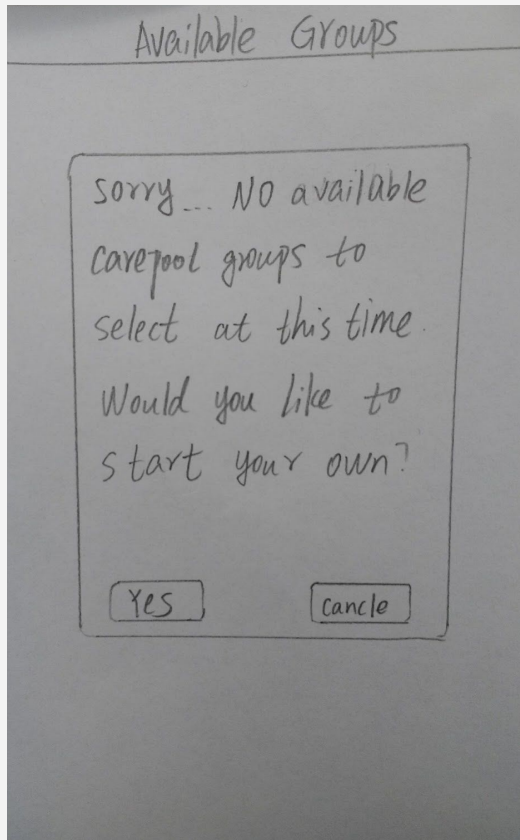 Available Groups
sorry... NO available
carepool groups to
select at this time.
Would you like to
start your own?
Yes
cancle